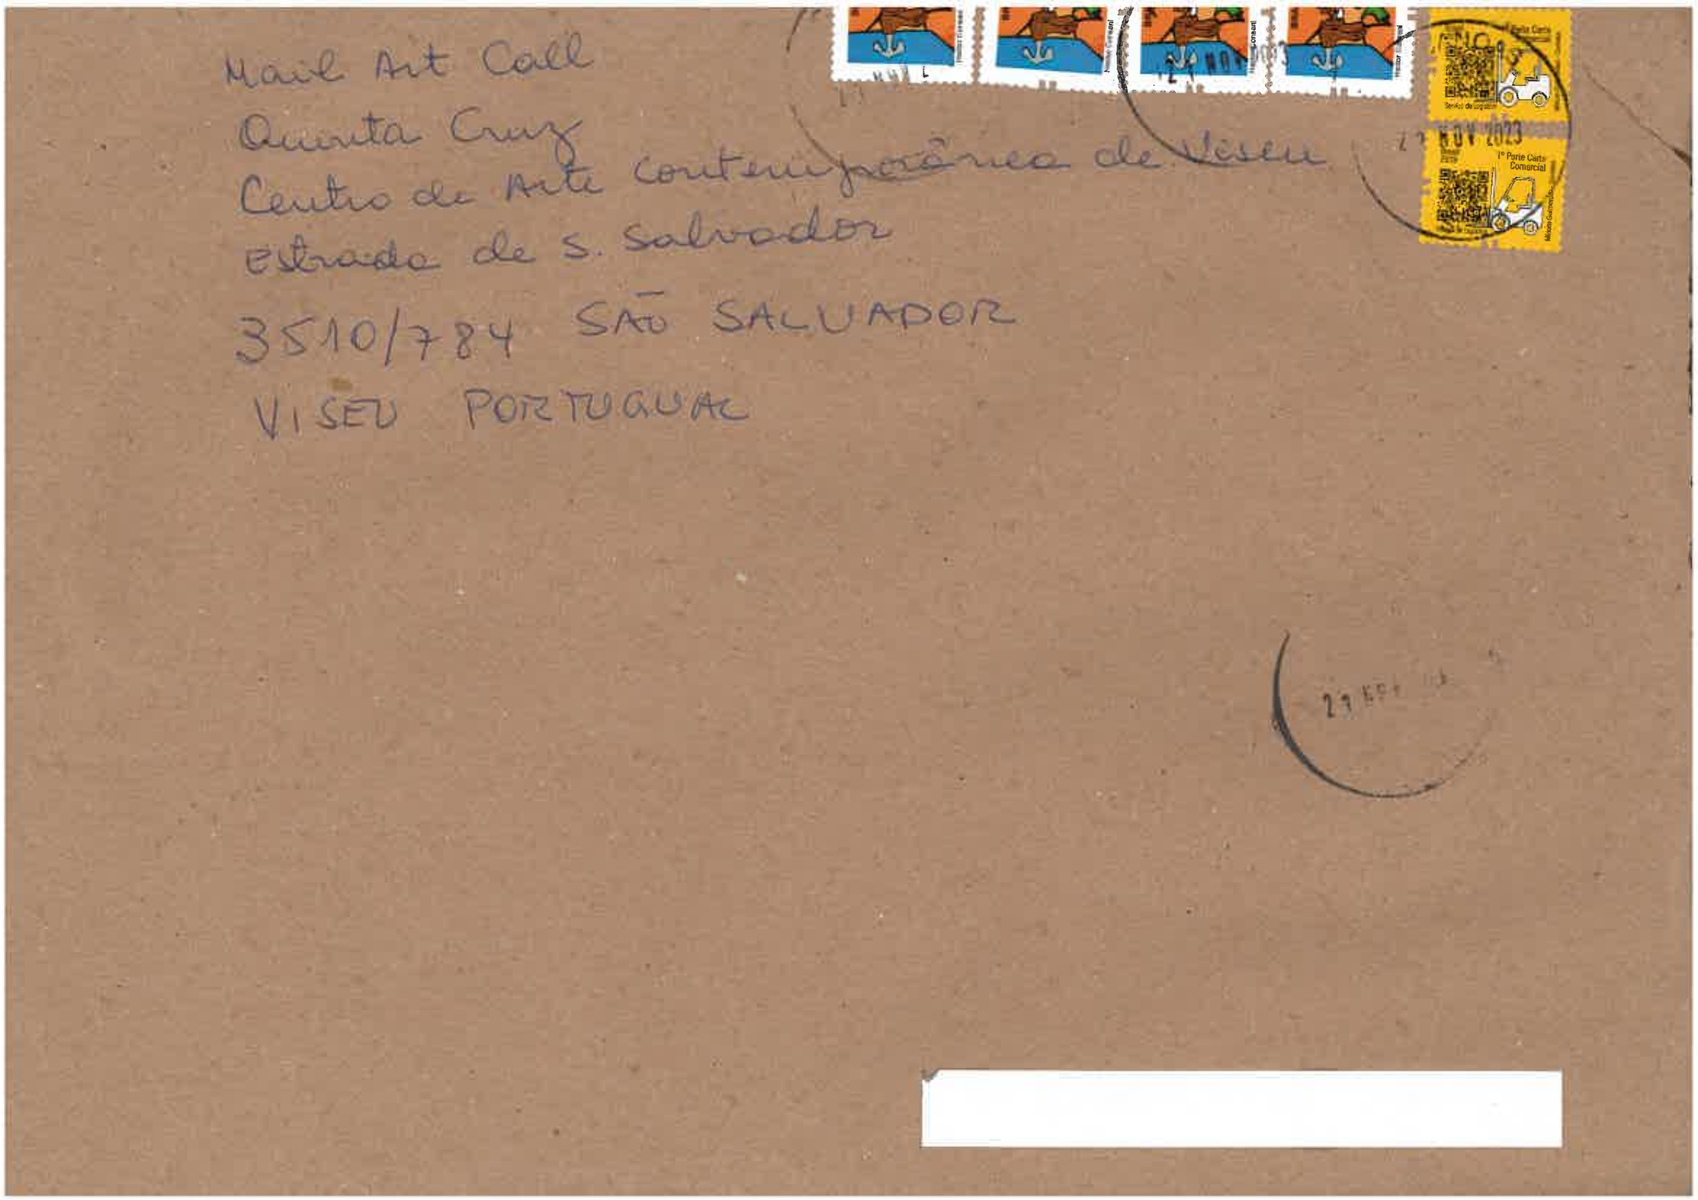 Mail Art Call
Quinta Cruz
Centro de Arte Contemporânea de Viseu
Estrada de S. Salvador
3510/784 SÃO SALVADOR
VISEU PORTUGUAL
21 NOV 2023
1º Porte Carta
Comercial